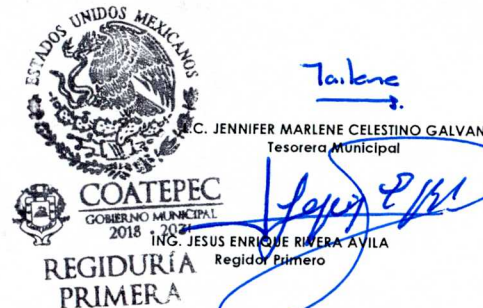 ESTADOS UNIDOS MEXICANOS
L.C. JENNIFER MARLENE CELESTINO GALVAN
Tesorera Municipal
COATEPEC
GOBIERNO MUNICIPAL
2018 - 2021
ING. JESUS ENRIQUE RIVERA AVILA
Regidor Primero
REGIDURÍA
PRIMERA